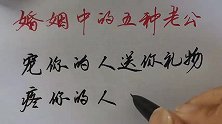 婚姻中的五种老公
宠你的人送你礼物
疼你的人